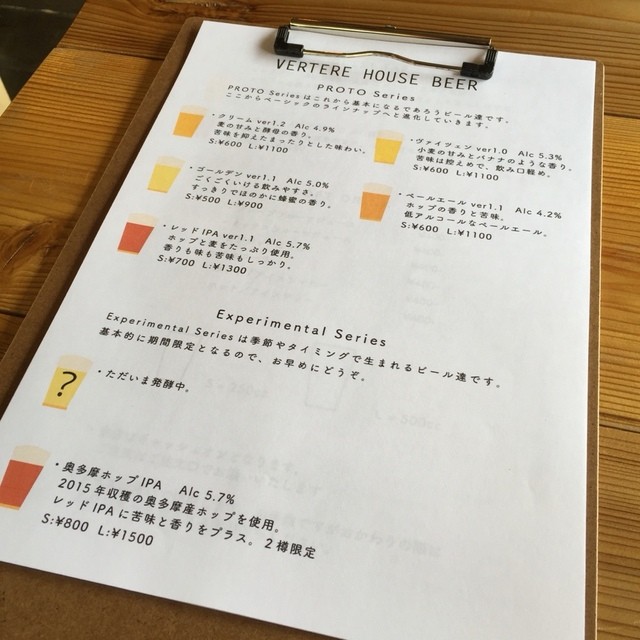 VERTERE HOUSE BEER
PROTO Series
PROTO Seriesはこれから基本になるであろうビール達です。
ここからベーシックのラインナップへと進化していきます。
・クリーム ver1.2 Alc 4.9%
麦の甘みと酵母の香り。
苦味を抑えたまったりとした味わい。
S:¥600 L:¥1100
・ヴァイツェン ver1.0 Alc 5.3%
小麦の甘みとバナナのような香り。
苦味は控えめで、飲み口軽め。
S:¥600 L:¥1100
・ゴールデン ver1.1 Alc 5.0%
ごくごくいける飲みやすさ。
すっきりでほのかに蜂蜜の香り。
S:¥500 L:¥900
・ペールエール ver1.1 Alc 4.2%
ホップの香りと苦味。
低アルコールなペールエール。
S:¥600 L:¥1100
・レッドIPA ver1.1 Alc 5.7%
ホップと麦をたっぷり使用。
香りも味も苦味もしっかり。
S:¥700 L:¥1300
Experimental Series
Experimental Seriesは季節やタイミングで生まれるビール達です。
基本的に期間限定となるので、お早めにどうぞ。
?
・ただいま発酵中。
・奥多摩ホップIPA Alc 5.7%
2015年収穫の奥多摩産ホップを使用。
レッドIPAに苦味と香りをプラス。2樽限定
S:¥800 L:¥1500